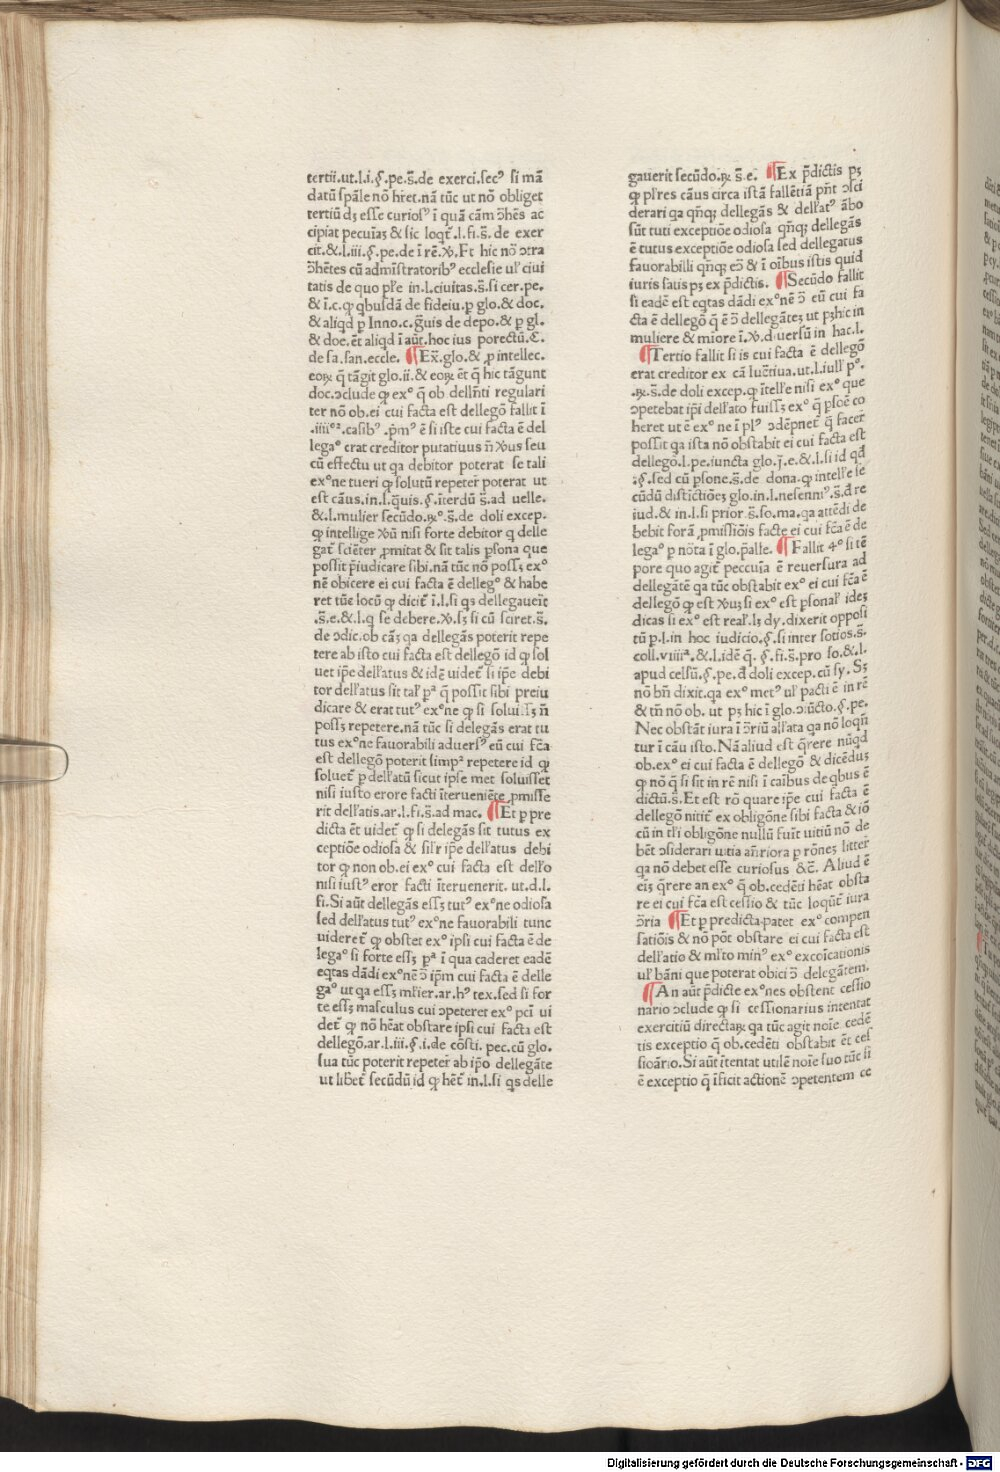 tertii.ut.l.i.§.pe.s̄.de exerci.secꝰ si mā
datū spāle nō hret.nā tūc ut nō obliget
tertiū dꝫ esse curiosꝰ ī quā cām ↄ̄hēs ac
cipiat pecuīaꝫ & sic loqt̄.l.fi.s̄.de exer
cit.&.l.iii.§.pe.de ī rē.ꝟ.Et hic nō ↄtra
ↄ̄hētes cū admīstratoribꝰ ecclesie ul̄ ciui
tatis de quo pl̄e in.l.ciuitas.s̄.si cer.pe.
& ī.c.ꝙ qbusdā de fideiu.ꝑ glo.& doc.
& aliqd ꝑ Inno.c.ḡuis de depo.& ꝑ gl.
& doc.ēt aliqd ī aūt.hoc ius porectū.C.
de sa.san.eccle. ¶Ex̄.glo.& ꝓ intellec.
eoꝝ q̄ tāgit glo.ii.& eoꝝ ēt q̄ hic tāgunt
doc.ↄclude ꝙ exᵒ q̄ ob dellīnti regulari
ter nō ob.ei cui facta est dellegō fallit ī
.iiiiᵒʳ.casibꝰ .p̄mꝰ ē si iste cui facta ē del
legaᵒ erat creditor putatiuus n̄ ꝟus seu
cū effectu ut qa debitor poterat se tali
exᵒne tueri ꝙ solutū repeter̄ poterat ut
est cāus.in.l.q̄uis.§.īterdū s̄.ad uelle.
&.l.mulier secūdo.ꝝᵒ.s̄.de doli excep.
ꝙ intellige ꝟū nisi forte debitor q delle
gat̄ sciēter ꝓmitat & sit talis ꝑsona que
possit p̄iudicare sibi.nā tūc nō possꝫ exᵒ
nē obicere ei cui facta ē dellegᵒ & habe
ret tūc locū ꝙ dicit̄ ī.l.si qs dellegaueīt
.s̄.e.&.l.q se debere.ꝟ.sꝫ si cū sciret.s̄.
de ↄdic.ob cāꝫ qa dellegās poterit repe
tere ab isto cui facta est dellegō id ꝙ sol
uet ip̄e dell̄atus & idē uidet̄ si ip̄e debi
tor dell̄atus sit tal̄ pᵃ q̄ possit sibi preiu
dicare & erat tutꝰ exᵒne ꝙ si solui.sꝫ n̄
possꝫ repetere.nā tūc si delegās erat tu
tus exᵒne fauorabili aduersꝰ eū cui fc̄a
est dellegō poterit simpᵃ repetere id ꝙ
soluet̄ ꝑ dell̄atū sicut ipse met soluisset
nisi iusto erore facti īterueniēte ꝓmisse
rit dell̄atis.ar.l.fi.s̄.ad mac. ¶Et ꝑ pre
dicta ēt uidet̄ ꝙ si delegās sit tutus ex
ceptiōe odiosa & sil̄r ip̄e dell̄atus debi
tor ꝙ non ob.ei exᵒ cui facta est dell̄o
nisi iustꝰ eror facti īteruenerit. ut.d.l.
fi.Si aūt dellegās essꝫ tutꝰ exᵒne odiosa
sed dell̄atus tutꝰ exᵒne fauorabili tunc
uideret̄ ꝙ obstet exᵒ ipsi cui facta ē de
legaᵒ si forte essꝫ pᵃ ī qua caderet eadē
eqtas dādi exᵒnē ↄ̄ ip̄m cui facta ē delle
gaᵒ ut qa essꝫ ml̄ier.ar.hꝰ tex.sed si for
te essꝫ masculus cui ↄpeteret exᵒ pc̄i ui
det̄ ꝙ nō hēat obstare ipsi cui facta est
dellegō.ar.l.iii.§.i.de cōsti.pec.cū glo.
sua tūc poterit repeter̄ ab ip̄o dellegāte
ut libet̄ secūdū id ꝙ hēt̄ in.l.si qs delle
gauerit secūdo.ꝝ s̄.e. ¶Ex p̄dictis pꝫ
ꝙ pl̄res cāus circa istā fallētiā pn̄t ↄsi
derari qa qn̄qꝫ dellegās & dell̄atꝰ ābo
sūt tuti exceptiōe odiosa qn̄qꝫ dellegās
ē tutus exceptiōe odiosa sed dellegatus
fauorabili qn̄qꝫ eↄ̄ & ī oībus istis quid
iuris satis pꝫ ex p̄dictis. ¶Secūdo fallit
si eadē est eqtas dādi exᵒnē ↄ̄ eū cui fa
cta ē dellegō q̄ ē ↄ̄ dellegāteꝫ ut pꝫ hic in
muliere & miore ī.ꝟ.diuersū in hac.l.
¶Tertio fallit si is cui facta ē dellegō
erat creditor ex cā luc̄tiua.ut.l.iul̄l pᵒ.
.ꝝ.s̄.de doli excep.ꝙ ītell̄e nisi exᵒ que
ↄpetebat ip̄i dell̄ato fuissꝫ exᵒ q̄ ꝑsōe co
heret ut ē exᵒ ne ī plꝰ ↄdēpnet̄ q̄ facer̄
possit qa ista nō obstabit ei cui facta est
dellegō.l.pe.iuncta glo.j̄.e.&.l.si id qd̄
:§.sed cū ꝑsone.s̄.de dona.ꝙ intell̄e se
cūdū distictiōeꝫ glo.in.l.nesenniꝰ.s̄.d̄ re
iud.& in.l.si prior.s̄.so.ma.qa attēdi de
bebit forā ꝓmissiōis facte ei cui fc̄a ē de
legaᵒ ꝑ nōta ī glo.p̄alle. ¶Fallit 4ᵒ si tē
pore quo agit̄ peccuīa ē reuersura ad
dellegātē qa tūc obstabit exᵒ ei cui fc̄a ē
dellegō ꝙ est ꝟuꝫ si exᵒ est ꝑsonal̄ ideꝫ
dicas si exᵒ est real̄.lꝫ dy.dixerit opposi
tū ꝑ.l.in hoc iudicio.§.si inter sotios.s̄.
coll.viiiiᵃ.&.l.idē q̄. §.fi.s̄.pro so.&.l.
apud celsū.§.pe.d̄ doli excep.cū sy. Sꝫ
nō bn̄ dixit.qa exᵒ metꝰ ul̄ pacti ē in rē
& tn̄ nō ob. ut pꝫ hic ī glo.ↄ̄iūcto.§.pe.
Nec obstāt iura ī ↄ̄riū all̄ata qa nō loqn̄
tur ī cāu isto. Nā aliud est q̄rere nūqd
ob.exᵒ ei cui facta ē dellegō & dicēduꝫ
ꝙ nō q̄ si sit in rē nisi ī caībus de qbus ē
dictū.s̄.Et est rō quare ip̄e cui facta ē
dellegō nitit̄ ex obligōne sibi facta & iō
cū in tl̄i obligōne nullū fuīt uitiū nō de
bēt ↄsiderari uitia an̄riora ꝑ rōneꝫ litter̄
qa nō debet esse curiosus &c̄. Aliud ē
eīꝫ q̄rere an exᵒ q̄ ob.cedēti hēat obsta
re ei cui fc̄a est cessio & tūc loqūt̄ iura
ↄ̄ria ¶Et ꝑ predicta.patet exᵒ compen
satiōis & nō pōt obstare ei cui facta est
dell̄atio & ml̄to minꝰ exᵒ excoīcationis
ul̄ bāni que poterat obici ↄ̄ delegātem.
¶An aūt p̄dicte exᵒnes obstent cessio
nario ↄclude ꝙ si cessionarius intentat
exercitiū directaꝝ qa tūc agit noīe cedē
tis exceptio q̄ ob.cedēti obstabit ēt ces
sioārio.Si aūt ītentat utilē noīe suo tūc si
ē exceptio q̄ īficit actionē ↄpetentem ce
Digitalisierung gefördert durch die Deutsche Forschungsgemeinschaft - DFG